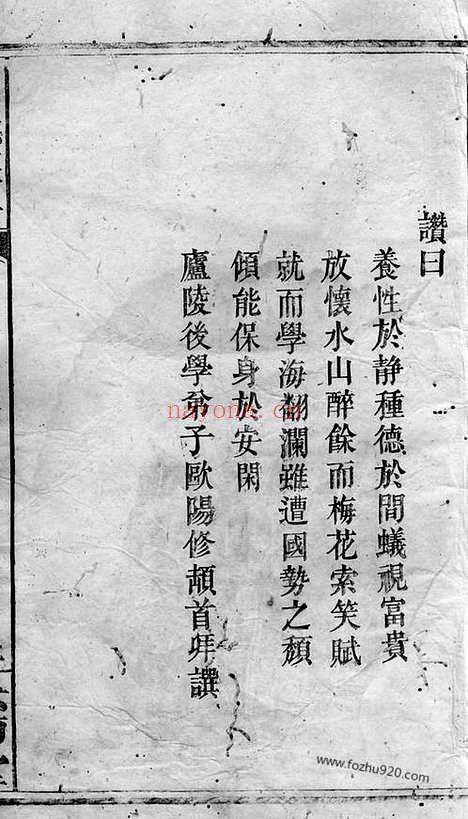 讚曰
養性於静種德於間蟻視富貴
放懷水山醉餘而梅花索笑賦
就而學海翻瀾雖遭國勢之頹
傾能保身於安閑
廬陵後學弟子歐陽修頓首拜譔
nayona.cn
www.fozhu920.com